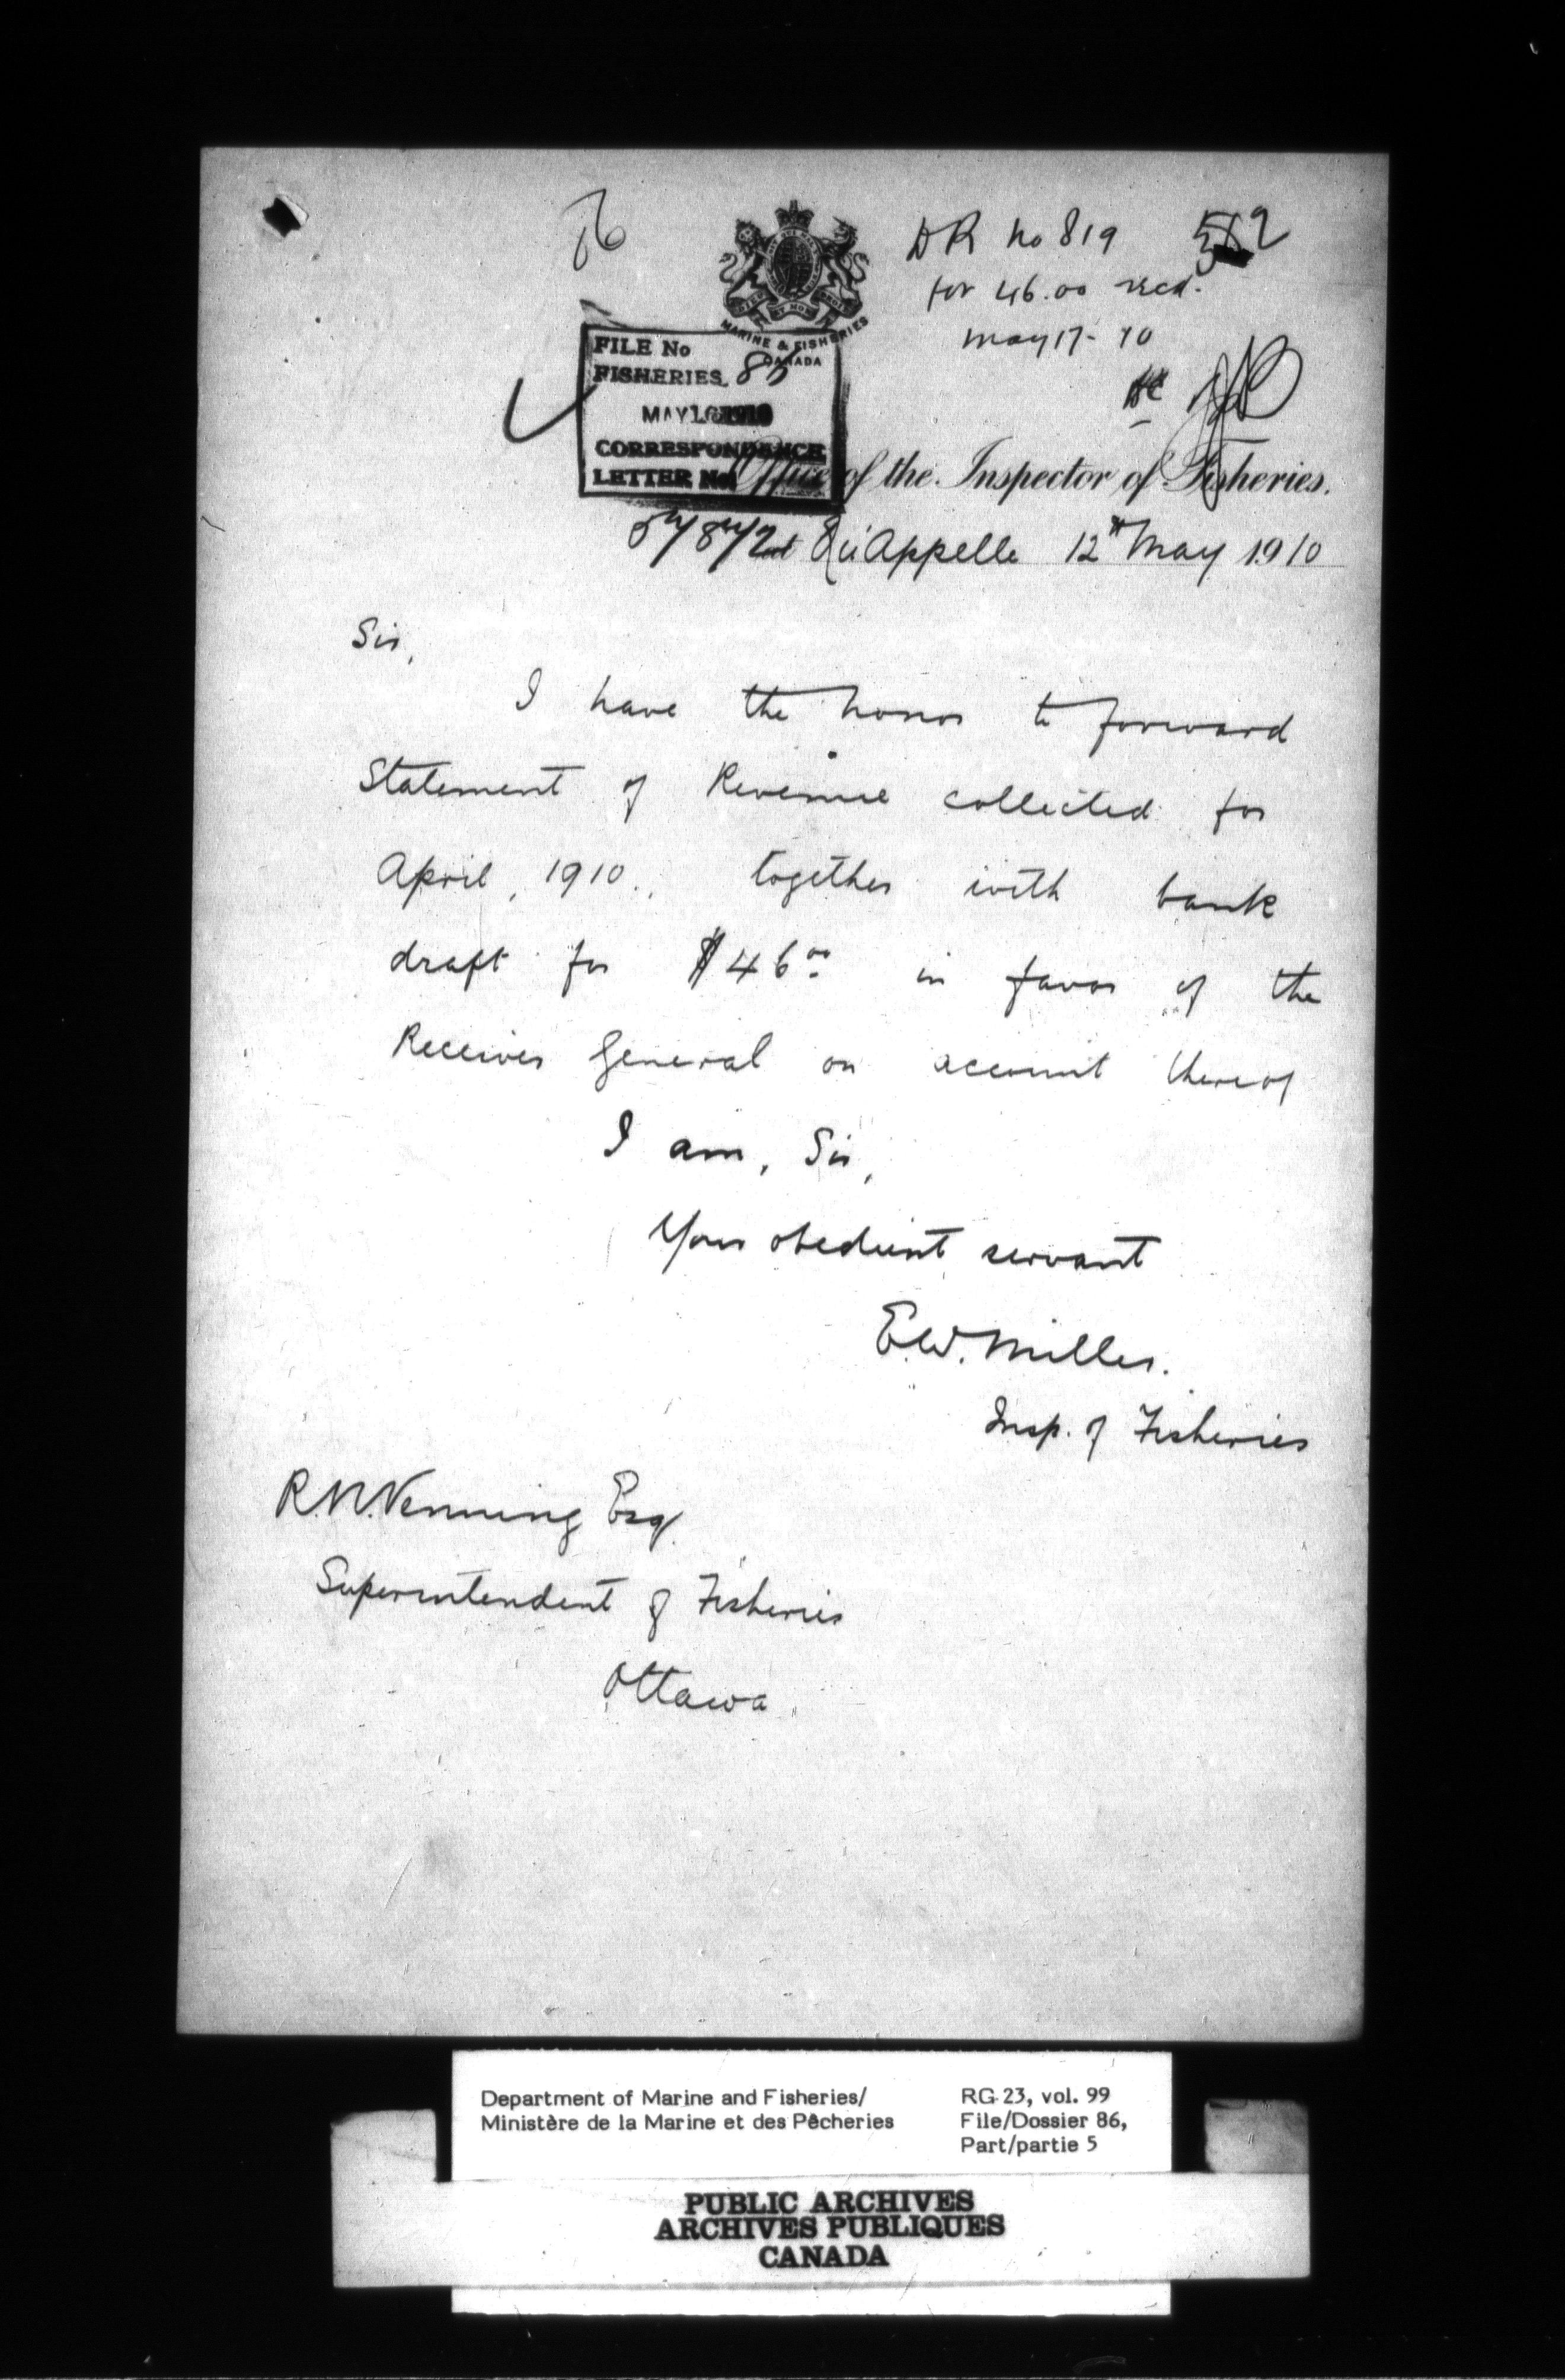 DR No 819
for 46.00 recd.
May 17-10
MARINE & FISHERIES
CANADA
FILE No
FISHERIES 86
MAY 16 1910
CORRESPONDENCE
LETTER No
Office of the Inspector of Fisheries.
at Qu'Appelle 12th May 1910
Sir,
I have the honor to forward
Statement of Revenue collected for
April, 1910, together with bank
draft for $46.00 in favor of the
Receiver General on account thereof
I am, Sir,
Your obedient servant
E.W. Miller.
Insp. of Fisheries
R.N. Venning Esq.
Superintendent of Fisheries
Ottawa
Department of Marine and Fisheries/
Ministère de la Marine et des Pêcheries
RG 23, vol. 99
File/Dossier 86,
Part/partie 5
PUBLIC ARCHIVES
ARCHIVES PUBLIQUES
CANADA